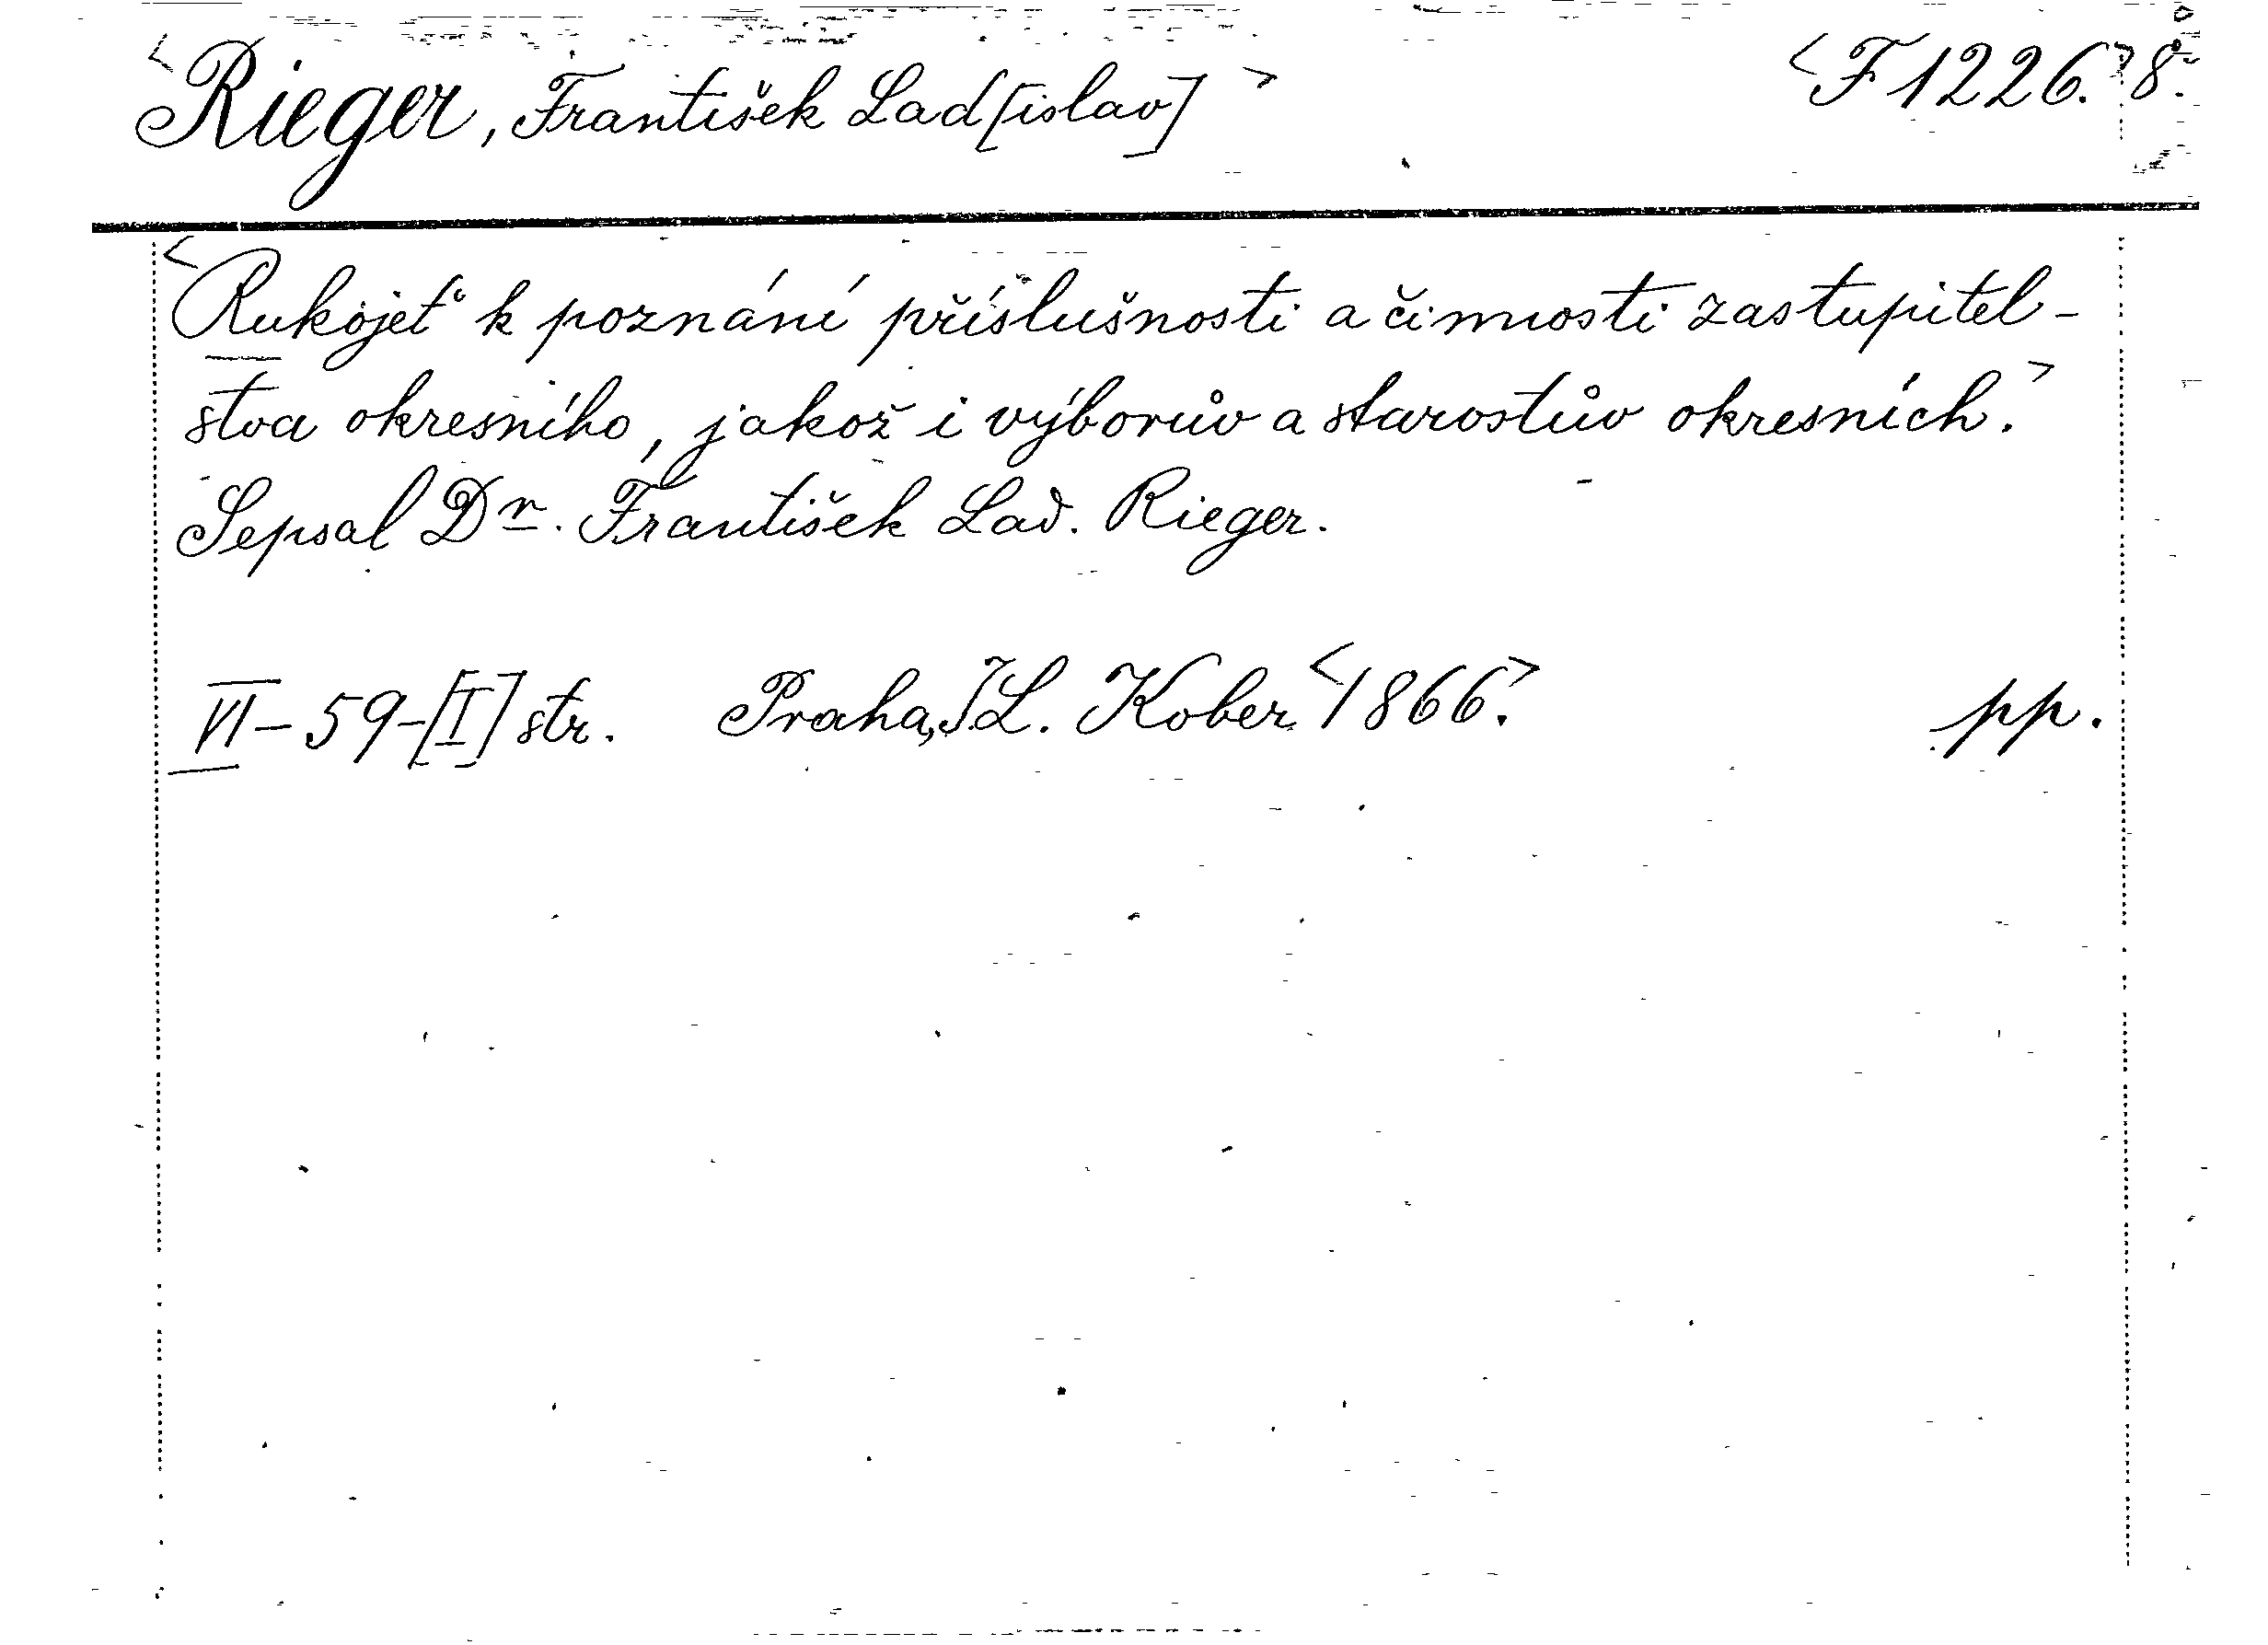 <Rieger, František Lad[islav]> <F 1226.> 8.°
<Rukojeť k poznání příslušnosti a činnosti zastupitel-
stva okresního, jakož i výborův a starostův okresních.>
Sepsal Dr. František Lad. Rieger.
VI-59-[I] str. Praha, I.L. Kober <1866.> pp.